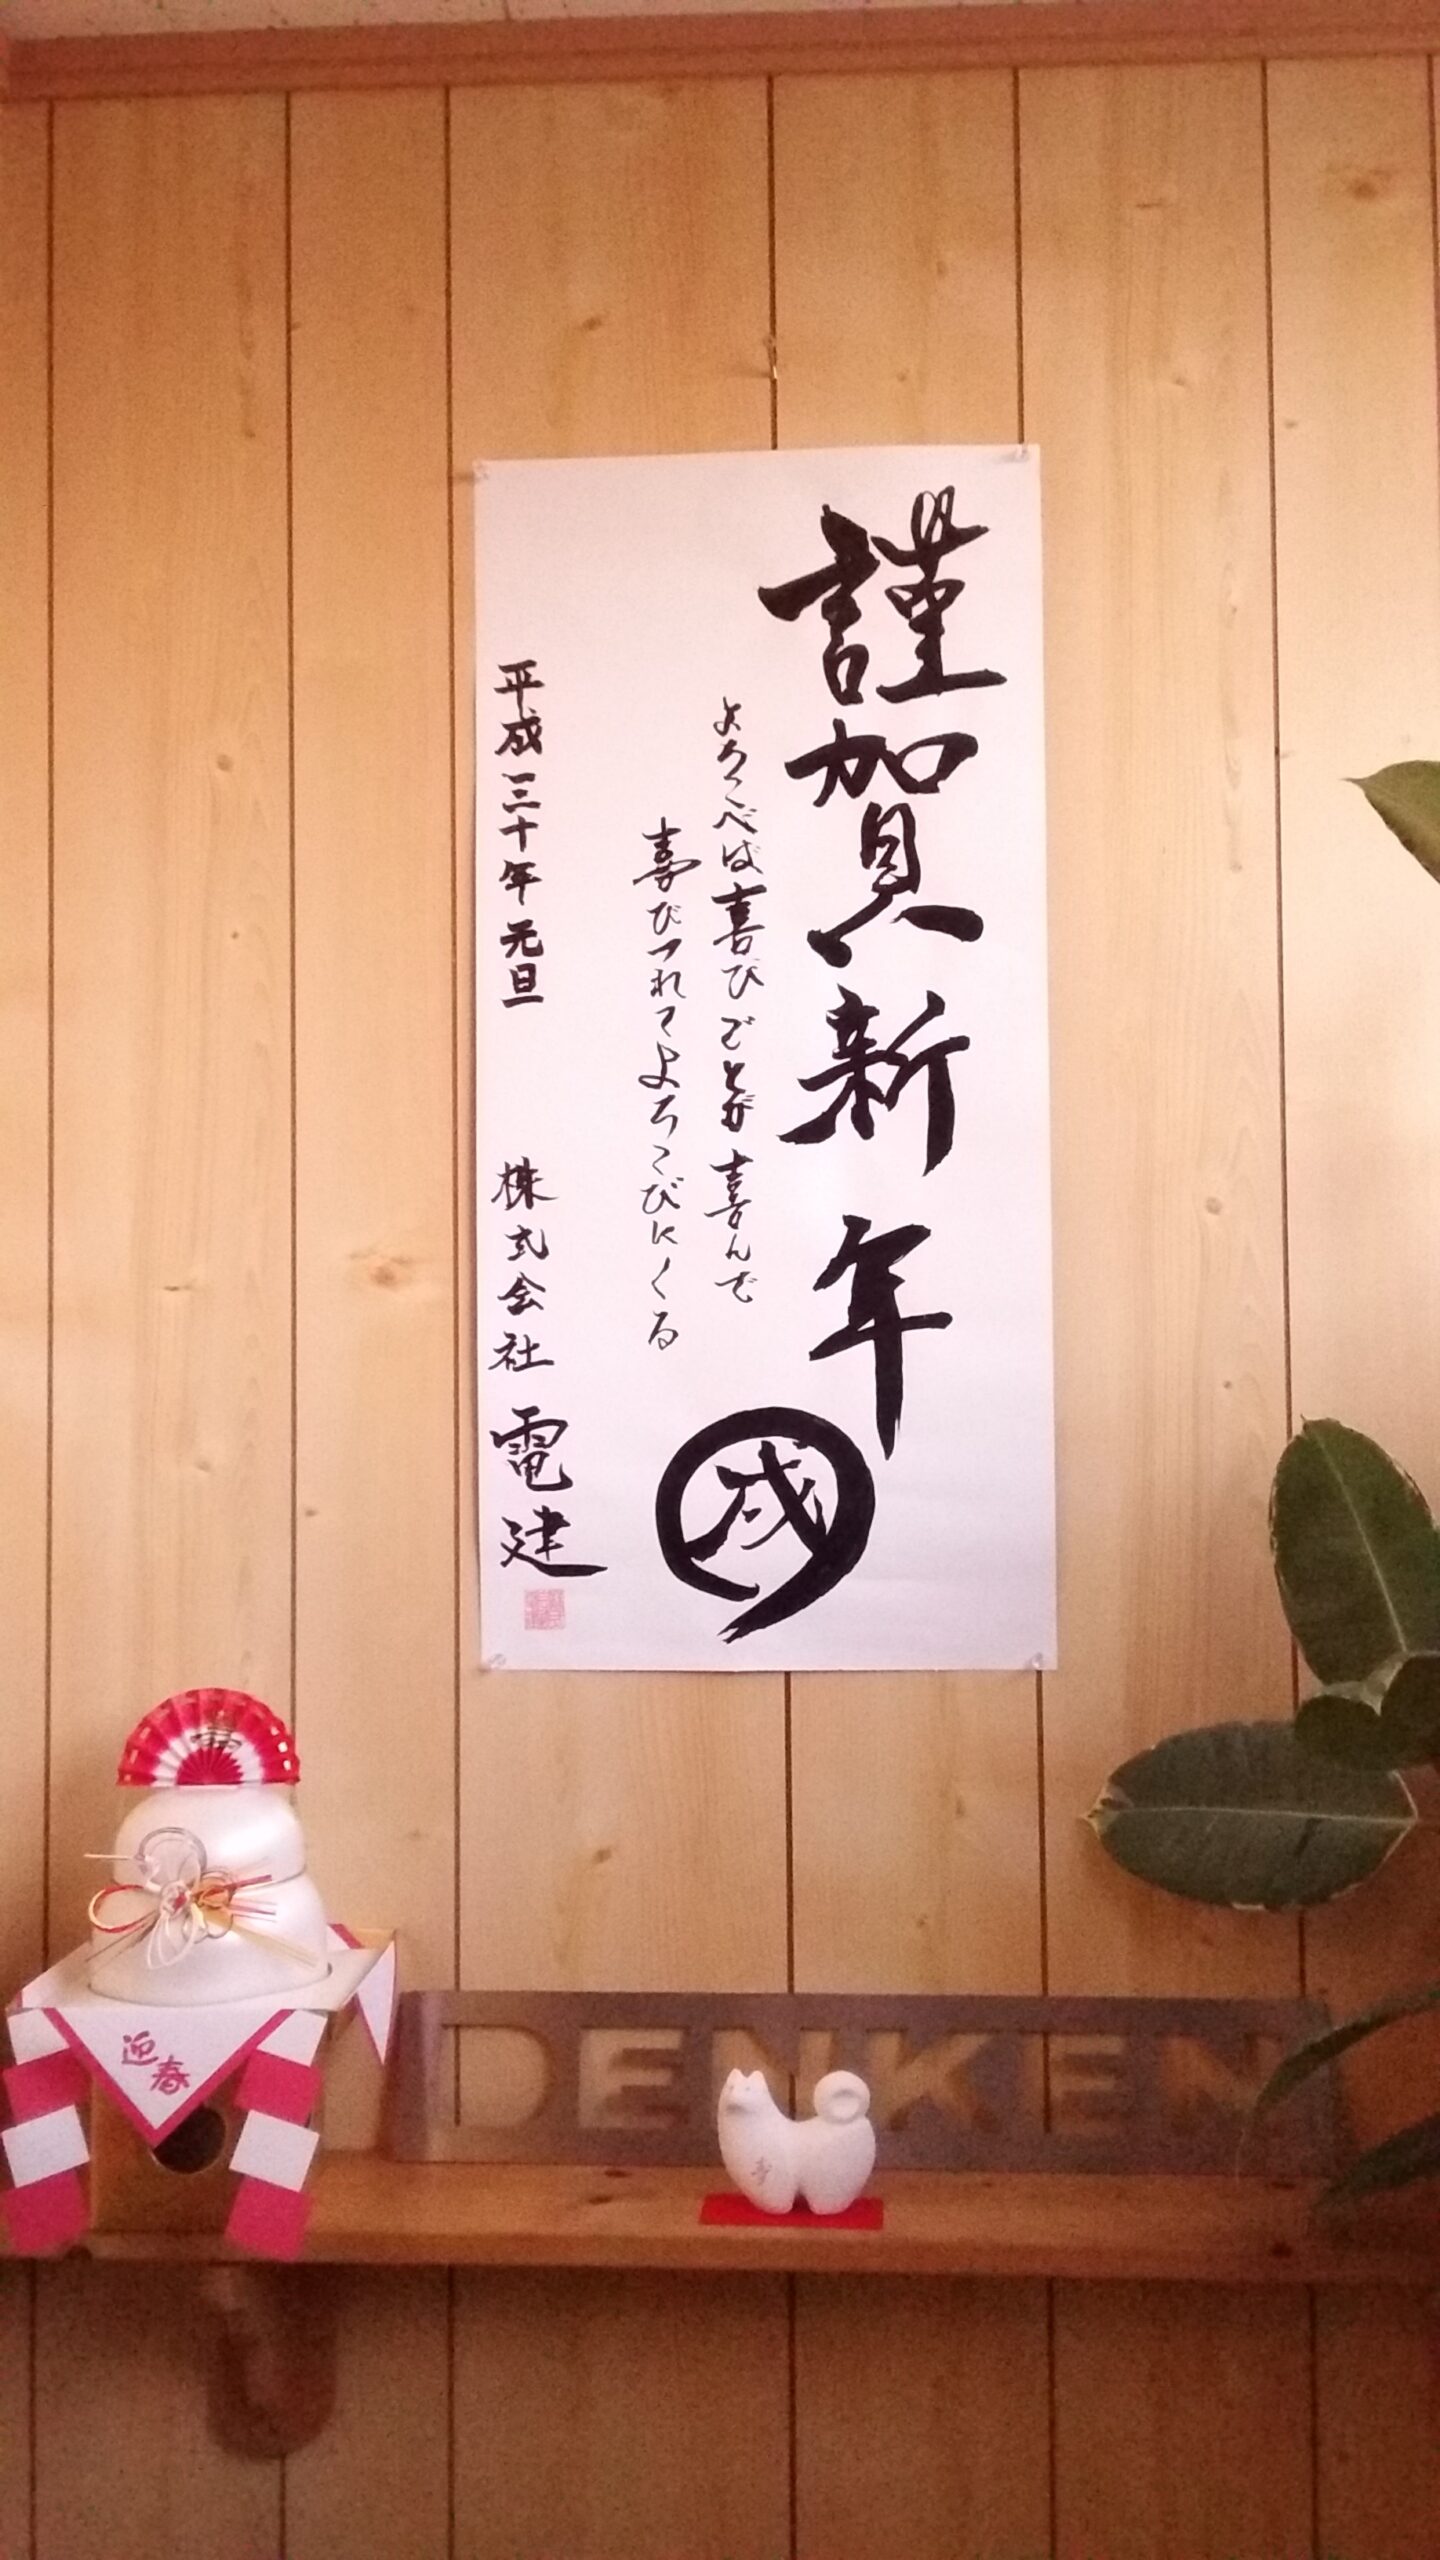 謹賀新年
戌
よろこべば喜びごとが喜んで
喜びつれてよろこびにくる
平成三十年元旦
株式会社 電建
迎春
DENKEN